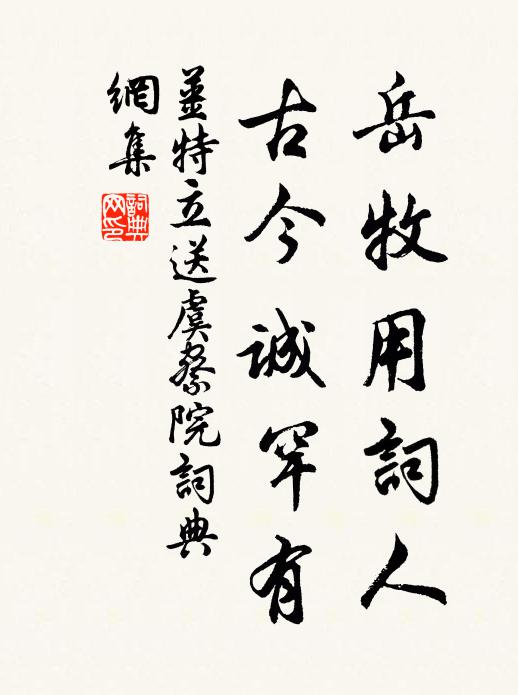 岳牧用詞人
古今誠罕有
薑特立送虞察院詞典
網集
詞典
网印